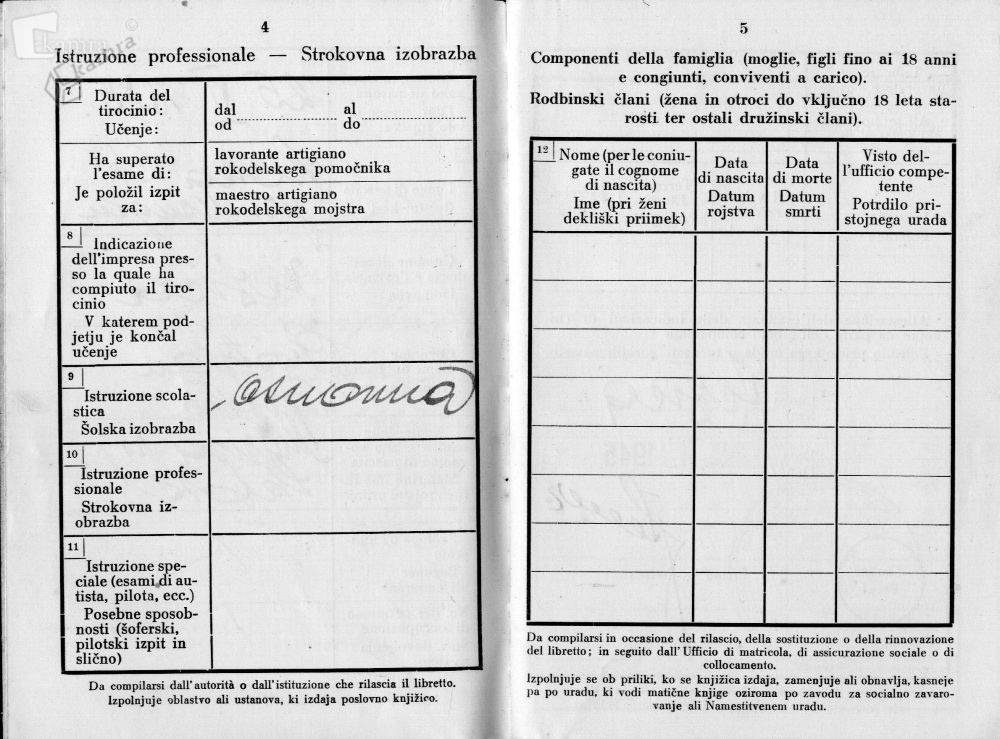 4
Istruzione professionale — Strokovna izobrazba
7 Durata del
tirocinio:
Učenje:
dal al
od do
Ha superato
l'esame di:
Je položil izpit
za:
lavorante artigiano
rokodelskega pomočnika
maestro artigiano
rokodelskega mojstra
8
Indicazione
dell'impresa pres-
so la quale ha
compiuto il tiro-
cinio
V katerem pod-
jetju je končal
učenje
9
Istruzione scola-
stica
Šolska izobrazba
10
Istruzione profes-
sionale
Strokovna iz-
obrazba
11
Istruzione spe-
ciale (esami di au-
tista, pilota, ecc.)
Posebne sposob-
nosti (šoferski,
pilotski izpit in
slično)
Da compilarsi dall'autorità o dall'istituzione che rilascia il libretto.
Izpolnjuje oblastvo ali ustanova, ki izdaja poslovno knjižico.
5
Componenti della famiglia (moglie, figli fino ai 18 anni
e congiunti, conviventi a carico).
Rodbinski člani (žena in otroci do vključno 18 leta sta-
rosti ter ostali družinski člani).
12 Nome (per le coniu-
gate il cognome
di nascita)
Ime (pri ženi
dekliški priimek)
Data
di nascita
Datum
rojstva
Data
di morte
Datum
smrti
Visto del-
l'ufficio compe-
tente
Potrdilo pri-
stojnega urada
Da compilarsi in occasione del rilascio, della sostituzione o della rinnovazione
del libretto; in seguito dall' Ufficio di matricola, di assicurazione sociale o di
collocamento.
Izpolnjuje se ob priliki, ko se knjižica izdaja, zamenjuje ali obnavlja, kasneje
pa po uradu, ki vodi matične knjige oziroma po zavodu za socialno zavaro-
vanje ali Namestitvenem uradu.